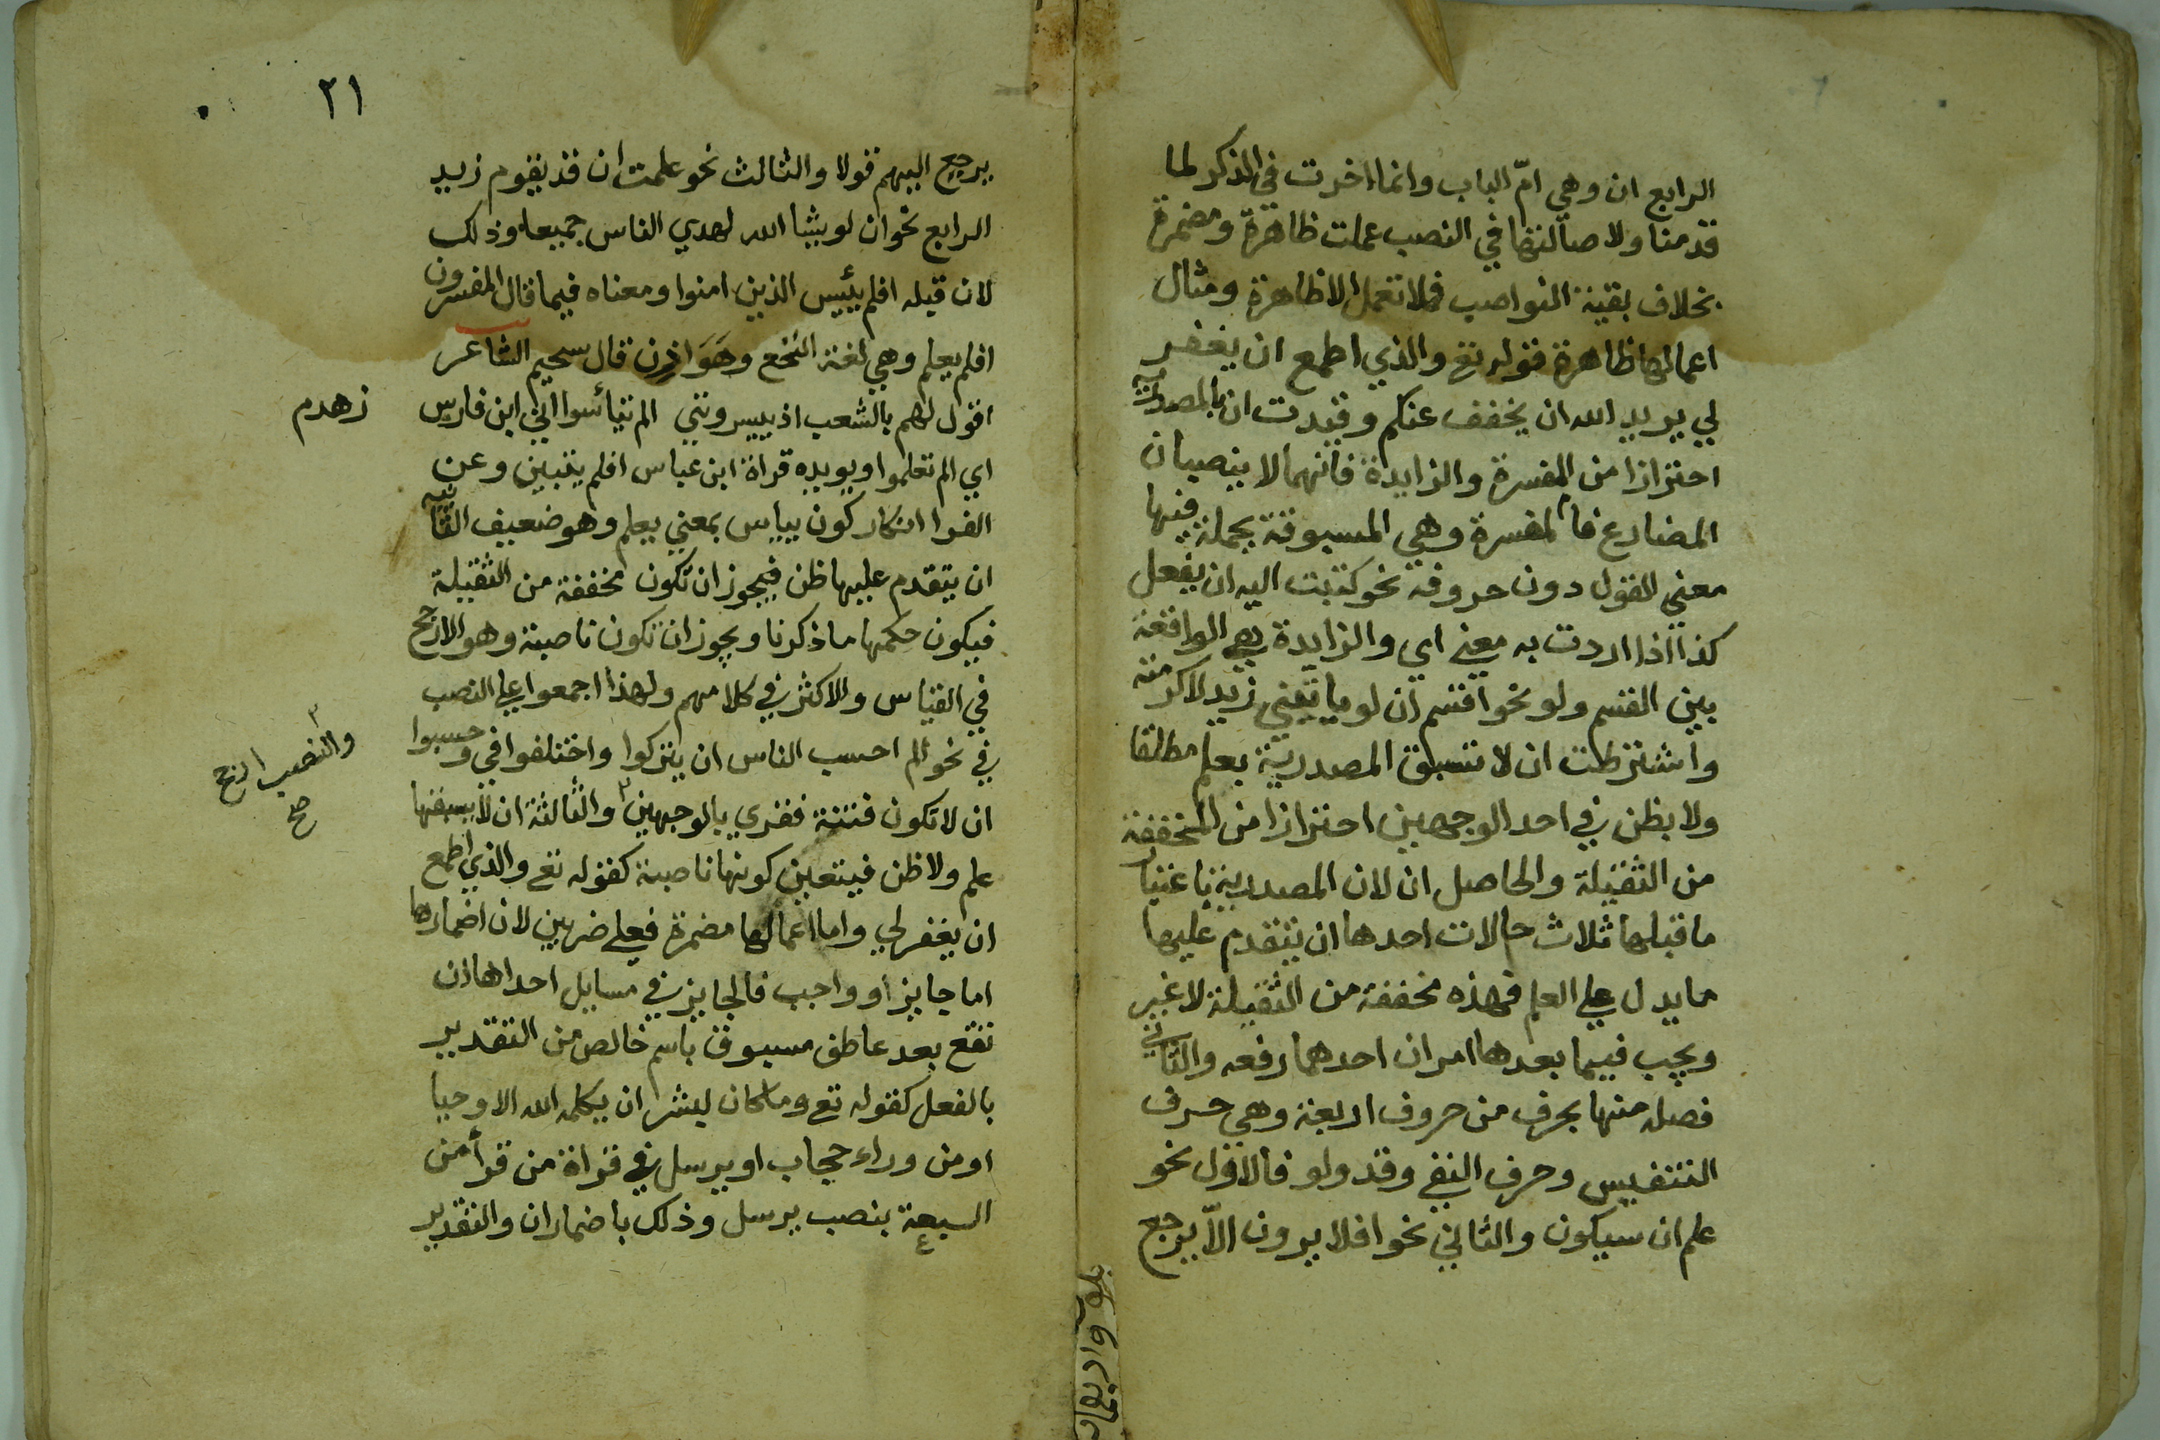 الرابع ان وهي امّ الباب وانما اخرت في الذكر لما
قدمنا ولاصالتها في النصب عملت ظاهرة ومضمرة
بخلاف بقية النواصب فلا تعمل الا ظاهرة ومثال
اعمالها ظاهرة قوله تع والذي اطمع ان يغفر
لي يريد الله ان يخفف عنكم وقيدت ان بالمصدرية
احترازا من المفسرة والزايدة فانهما لا ينصبان
المضارع فالمفسرة وهي المسبوقة بجملة فيها
معني القول دون حروفه نحو كتبت اليه ان يفعل
كذا اذا اردت به معني اي والزايدة هي الواقعة
بين القسم ولو نحو اقسم ان لو ياتيني زيد لاكرمته
واشترطت ان لا تسبق المصدرية بعلم مطلقا
ولا بظن في احد الوجهين احترازا من المخففة
من الثقيلة والحاصل ان لان المصدرية باعتبار
ما قبلها ثلاث حالات احدها ان يتقدم عليها
ما يدل علي العلم فهذه مخففة من الثقيلة لا غير
ويجب فيما بعدها امران احدهما رفعه والثاني
فصله منها بحرف من حروف اربعة وهي حرف
التنفيس وحرف النفي وقد ولو فالاول نحو
علم ان سيكون والثاني نحو افلا يرون الاّ يرجع
٢١
يرجع اليهم قولا والثالث نحو علمت ان قد يقوم زيد
الرابع نحو ان لو يشا الله لهدي الناس جميعا وذلك
لان قبله افلم يئيس الذين امنوا ومعناه فيما قال المفسرون
افلم يعلم وهي لغة النخع وهَوَازن قال سحيم الشاعر
اقول لهم بالشعب اذ ييسرونني الم تيأسوا اني ابن فارس
زهدم
اي الم تعلموا ويويده قراة ابن عباس افلم يتبين وعن
الفرا انكار كون ييياس بمعني يعلم وهو ضعيف الثانية
ان يتقدم عليها ظن فيجوز ان تكون مخففة من الثقيلة
فيكون حكمها ما ذكرنا ويجوز ان تكون ناصبة وهو الارجح
في القياس والاكثر في كلامهم ولهذا اجمعوا علي النصب
في نحو الم احسب الناس ان يتركوا واختلفوا في وحسبوا
ان لا تكون فتنة فقري بالوجهين ٢ والثالثة ان لا يسبقها
٢ والنصب ارجح
صح
علم ولا ظن فيتعين كونها ناصبة كقوله تع والذي اطمع
ان يغفر لي واما اعمالها مضمرة فعلي ضربين لان اضمارها
اما جايز او واجب فالجايز في مسايل احداها ان
تقع بعد عاطف مسبوق باسم خالص من التقدير
بالفعل كقوله تع وما كان لبشر ان يكلمه الله الا وحيا
او من وراء حجاب او يرسل في قراة من قرأ من
السبعة بنصب يرسل وذلك باضمار ان والتقدير